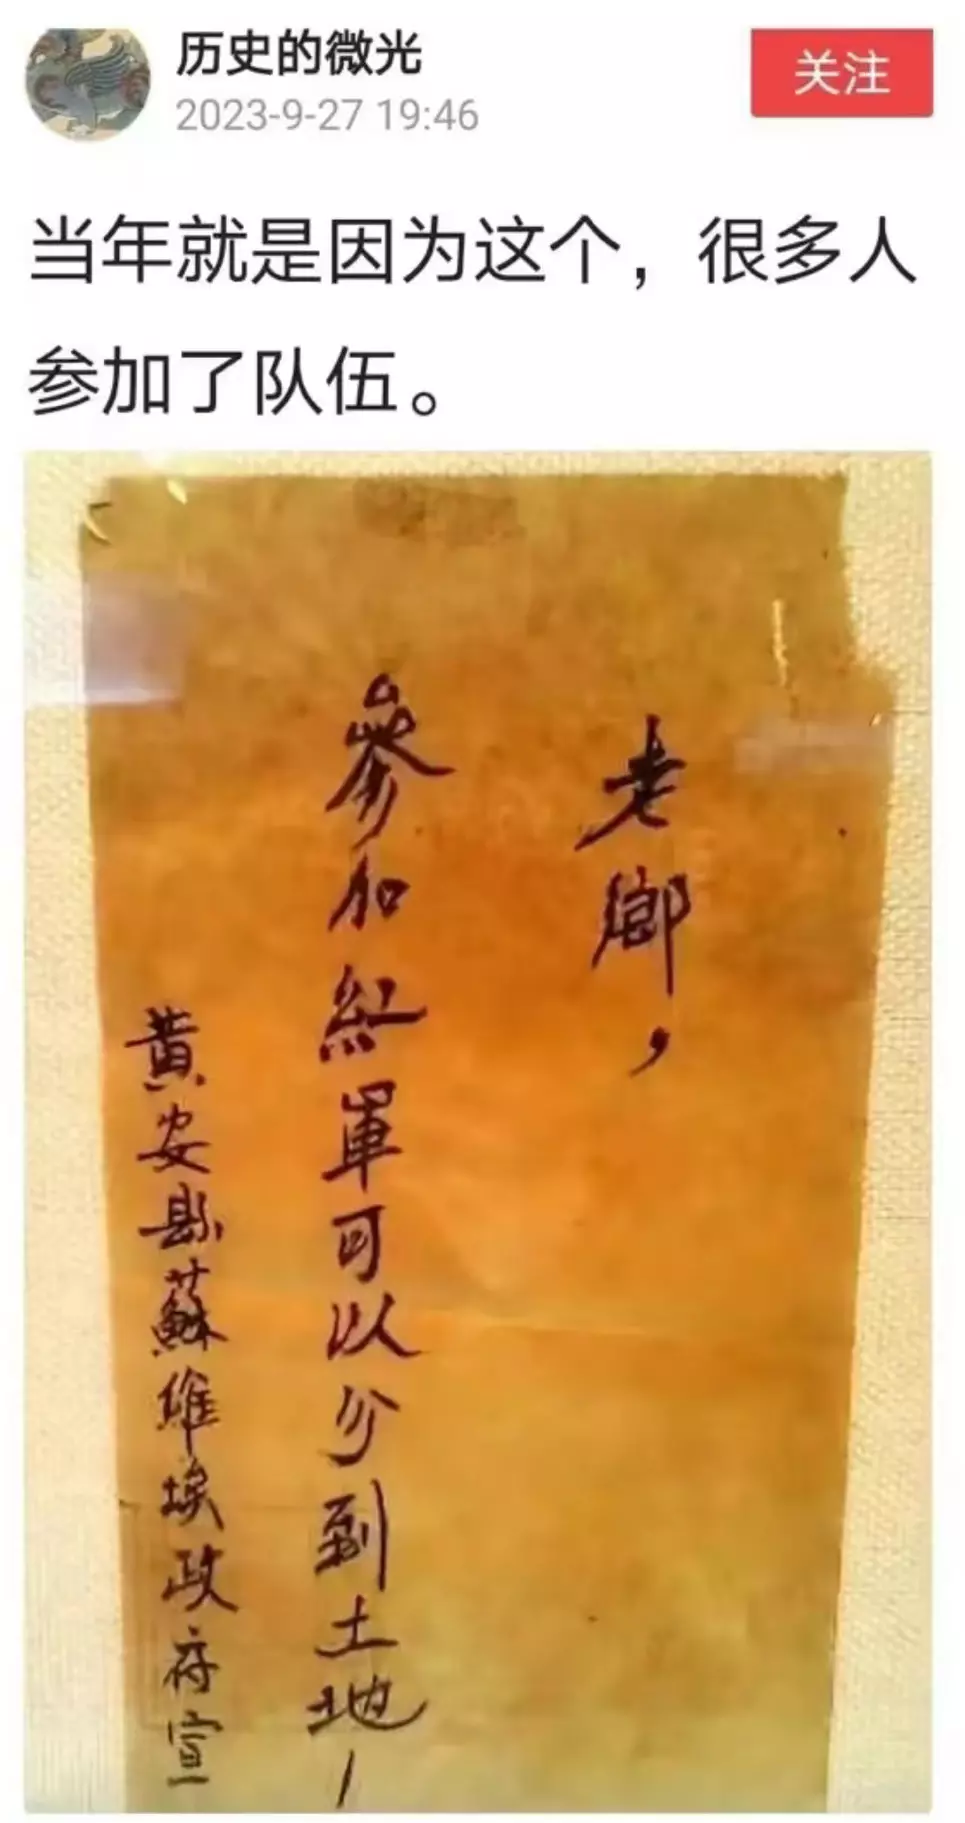 历史的微光
2023-9-27 19:46
关注
当年就是因为这个，很多人
参加了队伍。
老鄉，
參加紅軍可以分到土地！
黃安縣蘇維埃政府宣